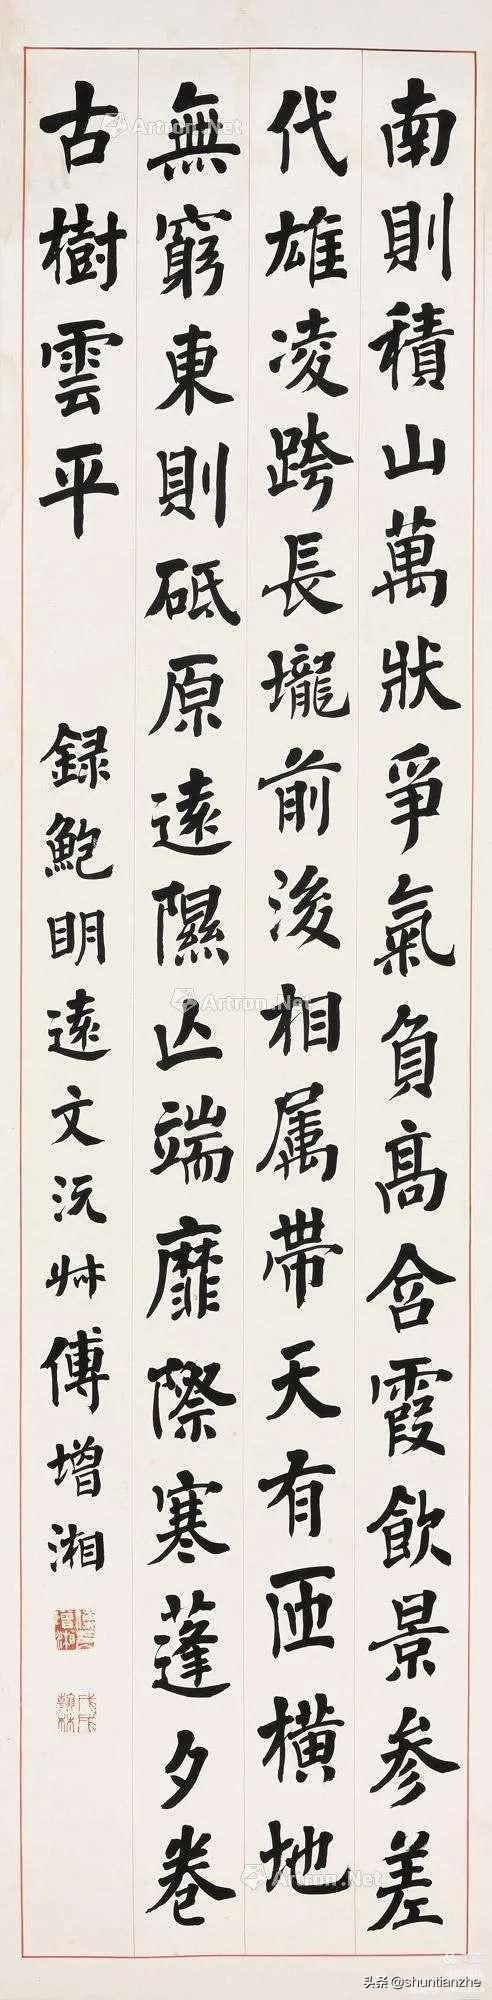 南則積山萬狀爭氣負高含霞飲景参差
代雄凌跨長壠前後相属帶天有匝橫地
無窮東則砥原遠隰亾端靡際寒蓬夕卷
古樹雲平
録鮑明遠文沅叔傅增湘
戊戌翰林
Artron.Net
Artron.Net
Artron.Net
头条 @shuntianzhe